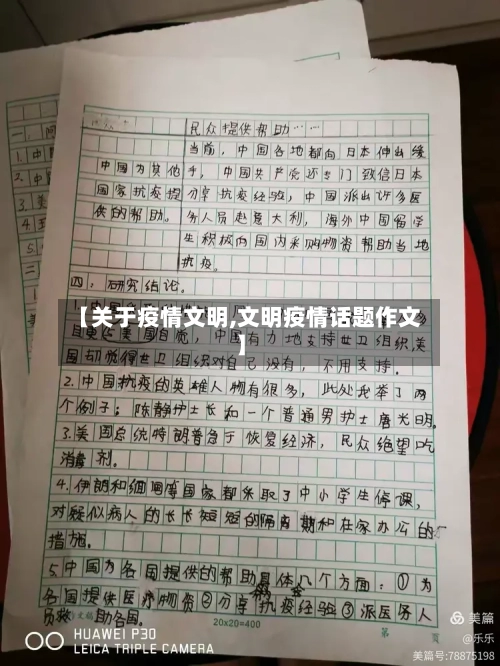 民众提供帮助……
当前，中国各地都向日本伸出缓
中国为其他手，中国共产党还专门致信日本
国家抗疫提分享抗疫经验，中国派出许多医
供的帮助。务人员赴意大利，海外中国留学
生积极向国内采购物资帮助当地
抗疫。
四：研究结论。
【关于疫情文明,文明疫情话题作文
】
有力地支持世卫组织,美
国却觉得世卫组织对自己没有，不用支持。
2.中国抗疫的英雄人物有很多，此处我举了两
个例子；陈静护士长和一个普通男护士唐光明。
3.美国总统特朗普急于恢复经济，民众绝望吃
消毒剂。
4.伊朗和缅甸等国家都采取了中小学生停课，
对疑似病人的长长短短的隔离期和在家办公的
措施。
5.中国为各国提供的帮助具体几个方面：①为
各国提供医疗物资②分享抗疫经验③派医务人
员 助各国。
20x20=400
第 页
HUAWEI P30
LEICA TRIPLE CAMERA
美篇
@乐乐
美篇号:78875198